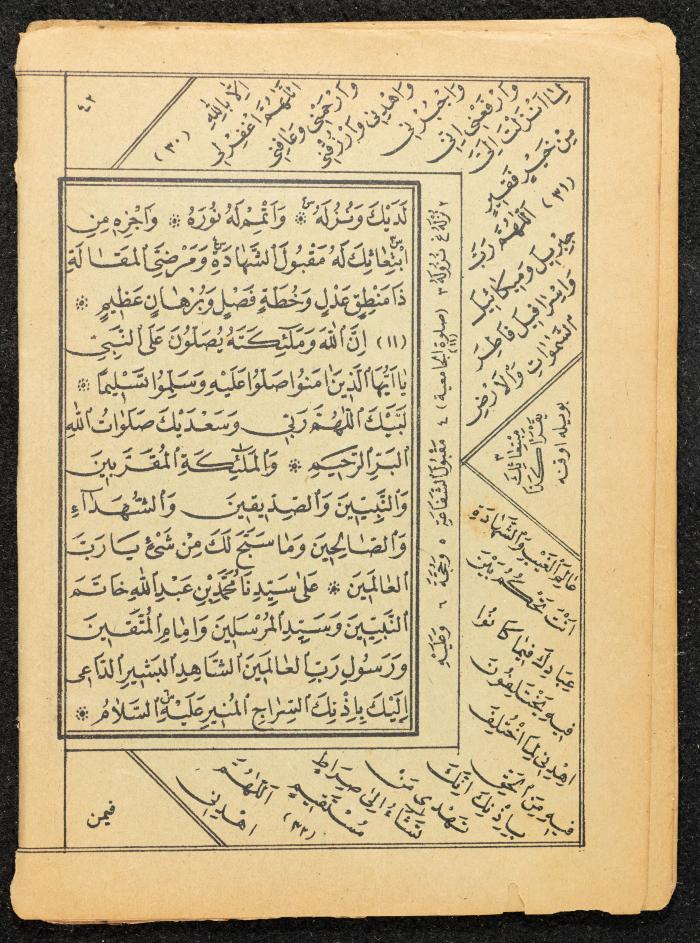 ٤٢
لَدَيْكَ وَنُزُلَهُ * وَاَتْمِمْ لَهُ نُورَهُ * وَاجْزِهِ مِنِ
ابْتِعَاثِكَ لَهُ مَقْبُولَ الشَّهَادَةِ وَمَرْضِىَّ الْمَقَالَةِ
ذَا مَنْطِقٍ عَدْلٍ وَخُطَّةٍ فَصْلٍ وَبُرْهَانٍ عَظِيمٍ *
(١١) اِنَّ اللهَ وَمَلَٓئِكَتَهُ يُصَلُّونَ عَلَى النَّبِىِّ
يَا اَيُّهَا الَّذِينَ اٰمَنُوا صَلُّوا عَلَيْهِ وَسَلِّمُوا تَسْلِيمًا *
لَبَّيْكَ اَللّٰهُمَّ رَبِّى وَسَعْدَيْكَ صَلَوَاتُ اللهِ
الْبَرِّ الرَّحِيمِ * وَالْمَلَٓئِكَةِ الْمُقَرَّبِينَ
وَالنَّبِيِّينَ وَالصِّدِّيقِينَ وَالشُّهَدَٓاءِ
وَالصَّالِحِينَ وَمَا سَبَّحَ لَكَ مِنْ شَىْءٍ يَا رَبَّ
الْعَالَمِينَ * عَلَى سَيِّدِنَا مُحَمَّدِ بْنِ عَبْدِ اللهِ خَاتَمِ
النَّبِيِّينَ وَسَيِّدِ الْمُرْسَلِينَ وَاِمَامِ الْمُتَّقِينَ
وَرَسُولِ رَبِّ الْعَالَمِينَ الشَّاهِدِ الْبَشِيرِ الدَّاعِى
اِلَيْكَ بِاِذْنِكَ السِّرَاجِ الْمُنِيرِ عَلَيْهِ السَّلَامُ *
٢ نُزُلَهُ ع نُزُولَهُ ٣ (صلوة الجامعية) (١١) ٤ مَقْبُولَ الشَّفَاعَةِ ٥ ٦ وَعَلَيْهِ
اِلَّا بِاللهِ
(٣٠)
اَللّٰهُمَّ اغْفِرْ لِى
وَارْحَمْنِى وَعَافِنِى
وَاهْدِنِى وَارْزُقْنِى
وَاجْبُرْنِى
وَارْفَعْنِى اِنِّى
لِمَا اَنْزَلْتَ اِلَىَّ
مِنْ خَيْرٍ فَقِيرٌ
(٣١) اَللّٰهُمَّ رَبَّ
جِبْرِيلَ وَمِيكَائِيلَ
وَاِسْرَافِيلَ فَاطِرَ
السَّمٰوَاتِ وَالْاَرْضِ
بويله اوقنه
عَالِمَ الْغَيْبِ وَالشَّهَادَةِ
اَنْتَ تَحْكُمُ بَيْنَ
عِبَادِكَ فِيمَا كَانُوا
فِيهِ يَخْتَلِفُونَ
اِهْدِنِى لِمَا اخْتُلِفَ
فِيهِ مِنَ الْحَقِّ
بِاِذْنِكَ اِنَّكَ
تَهْدِى مَنْ
تَشَٓاءُ اِلٰى صِرَاطٍ
مُسْتَقِيمٍ
(٣٢)
اَللّٰهُمَّ
اهْدِنِى
فيمن